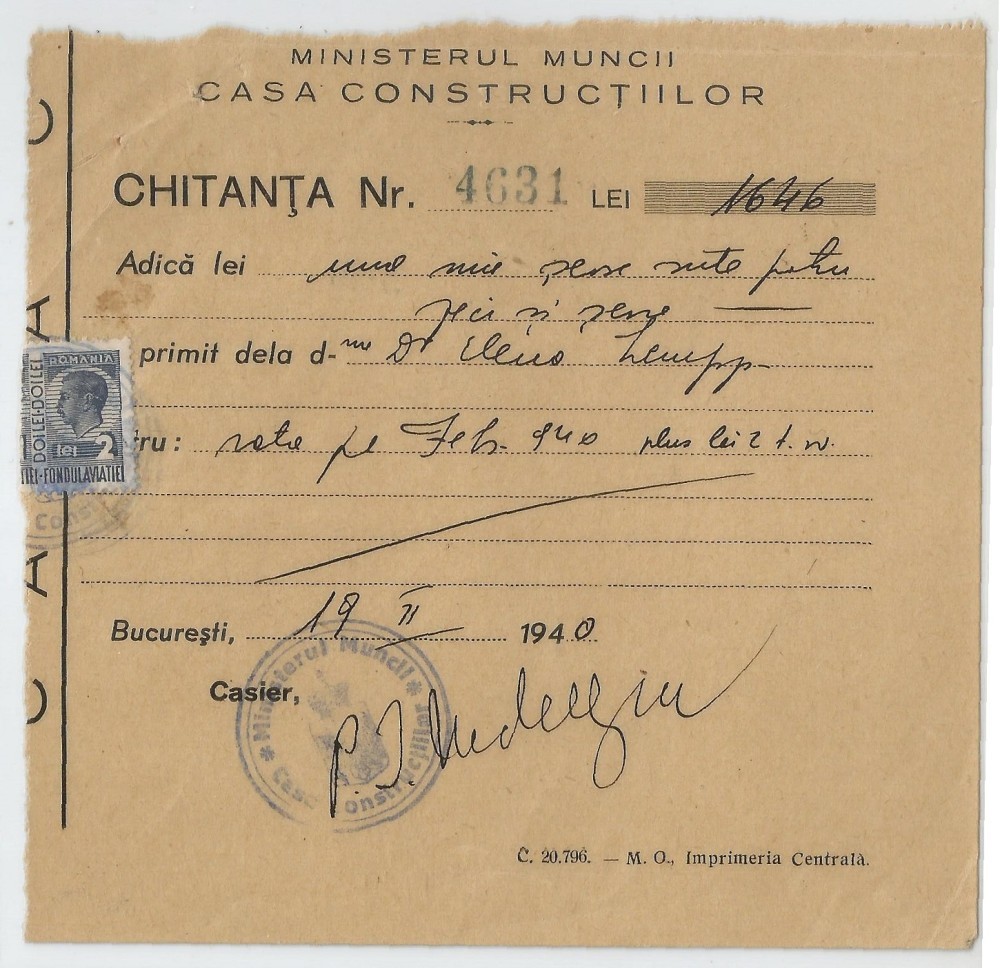 MINISTERUL MUNCII
CASA CONSTRUCŢIILOR
CHITANŢA Nr. 4631 LEI 1646
Adică lei una mie şease sute patru
zeci şi şease
primit dela d-me Dr Elena Lempp
tru: rata pe Feb. 940 plus lei 2 t.
ROMANIA
DOI LEI·DOI LEI
lei 2
FONDUL AVIATIEI
Cons
Bucureşti, 19 II 1940
Casier,
P. I.
* Ministerul Muncii * Casa Construcţiilor
Č. 20.796. — M. O., Imprimeria Centrală.
C A A C